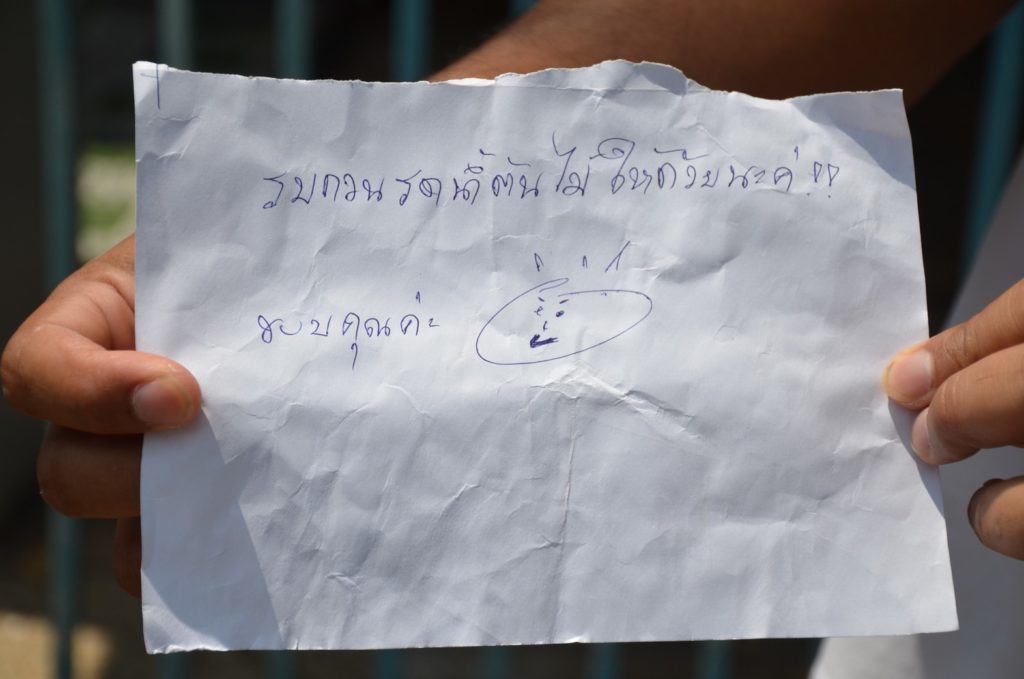 รบกวนรดน้ำต้นไม้ให้ด้วยนะค่ะ!!
ขอบคุณค่ะ